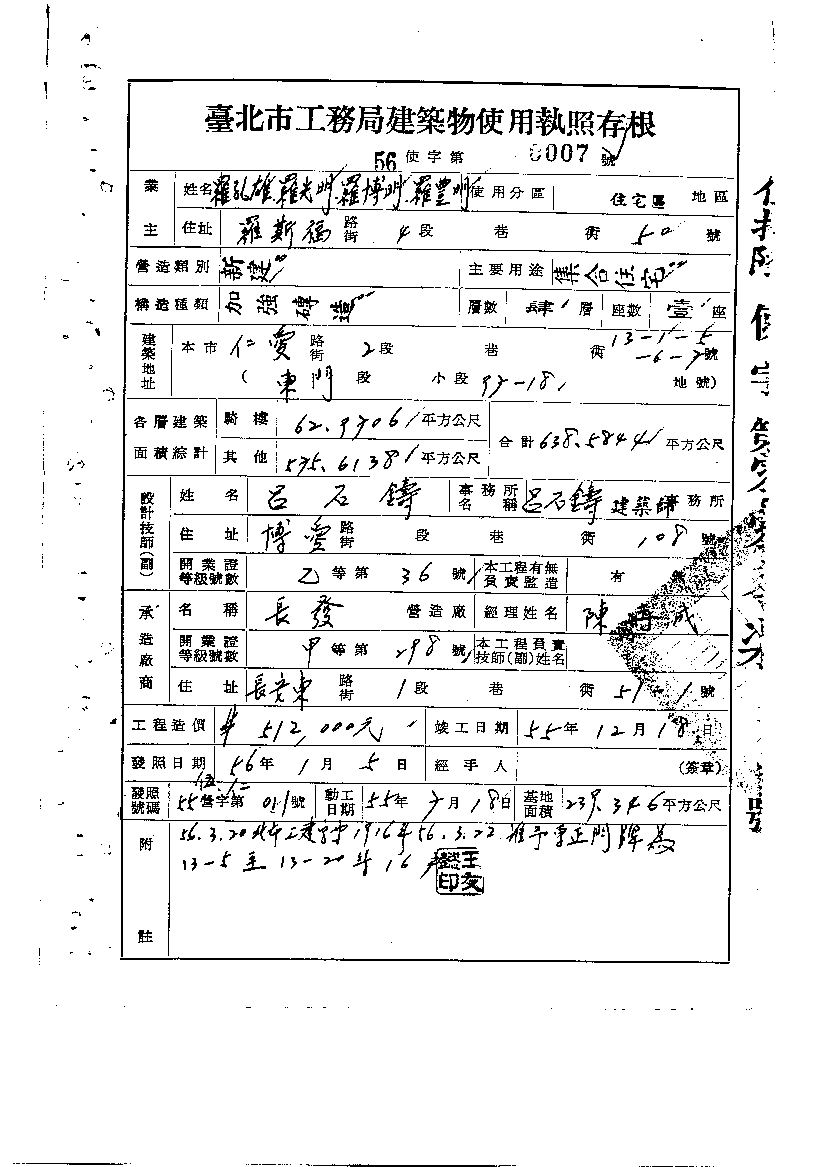 臺北市工務局建築物使用執照存根
56 使字第 0007 號
業主 姓名 羅弘雄 羅光明 羅博明 羅豊明 使用分區 住宅區 地區
住址 羅斯福 路街 4 段 巷 衖 50 號
營造類別 新建 主要用途 集合住宅
構造種類 加強磚造 層數 肆 層 座數 壹 座
建築地址 本市 仁愛 路街 2 段 巷 衖 13-1-5-6-7 號
( 東門 段 小段 97-18 地號)
各層建築面積綜計 騎樓 62.9706 平方公尺 合計 638.5844 平方公尺
其他 575.6138 平方公尺
設計技師(副) 姓名 呂石鑄 事務所名稱 呂石鑄建築師事務所
住址 博愛 路街 段 巷 衖 108 號
開業證等級號數 乙 等第 36 號 本工程有無負責監造 有
承造廠商 名稱 長發 營造廠 經理姓名 陳 成
開業證等級號數 甲 等第 298 號 本工程負責技師(副)姓名
住址 長安東 路街 1 段 巷 衖 51-1 號
工程造價 512,000元 竣工日期 55年12月18日
發照日期 56年1月5日 經手人 (簽章)
發照號碼 55 營字第 號 動工日期 55年7月18日 基地面積 239.346 平方公尺
附註 56.3.20 北市工建字第1916 56.3.22 准予更正門牌為
13-5 至 13-20 16
王友懿印